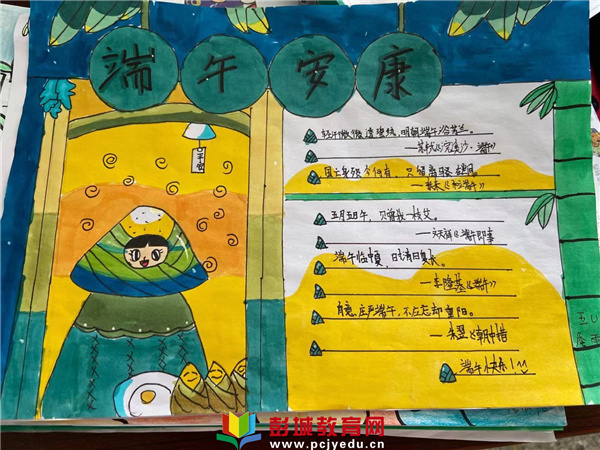 端午安康
平安
轻汗微微透碧纨,明朝端午浴芳兰。
——苏轼《浣溪沙·端午》
国亡身殒今何有,只留离骚在世间。
——张耒《和端午》
五月五日午,赠我一枝艾。
——文天祥《端午即事》
端午临中夏,时清日复长。
——李隆基《端午》
有意庄严端午,不应忘却重阳。
——朱翌《朝中措》
端午快乐!
彭城教育网
www.pcjyedu.cn